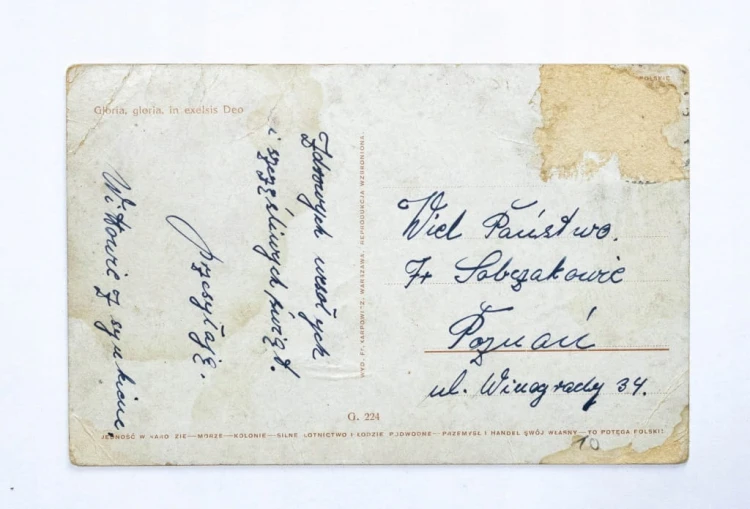 Gloria, gloria, in exelsis Deo
Zdrowych wesołych
i szczęśliwych świąt.
Przesyłają.
z synkiem.
WYD. FR. KARPOWICZ, WARSZAWA. REPRODUKCJA WZBRONIONA
POLSKIE
Wiel Państwo.
Fr Sobczakowie
Poznań
ul. Winogrady 34.
G. 224
JEDNOŚĆ W NARODZIE—MORZE—KOLONIE—SILNE LOTNICTWO I ŁODZIE PODWODNE—PRZEMYSŁ I HANDEL SWÓJ WŁASNY—TO POTĘGA POLSKI!
10